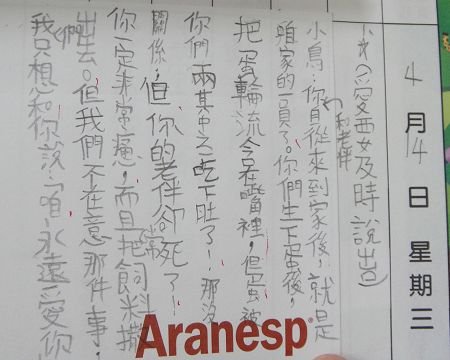 4月14日 星期三
愛要及時說出
小鳥:你和老伴自從來到家後,就是
咱家的一員了。你們生下蛋後,
把蛋輪流含在嘴角裡,但蛋被
你們兩其中之一吃下肚了!那沒
關係,但你的老伴卻死了!
你一定非常,而且把飼料撒
出去。但我們不在意那件事,
我們只想和你說「咱永遠愛你
Aranesp®